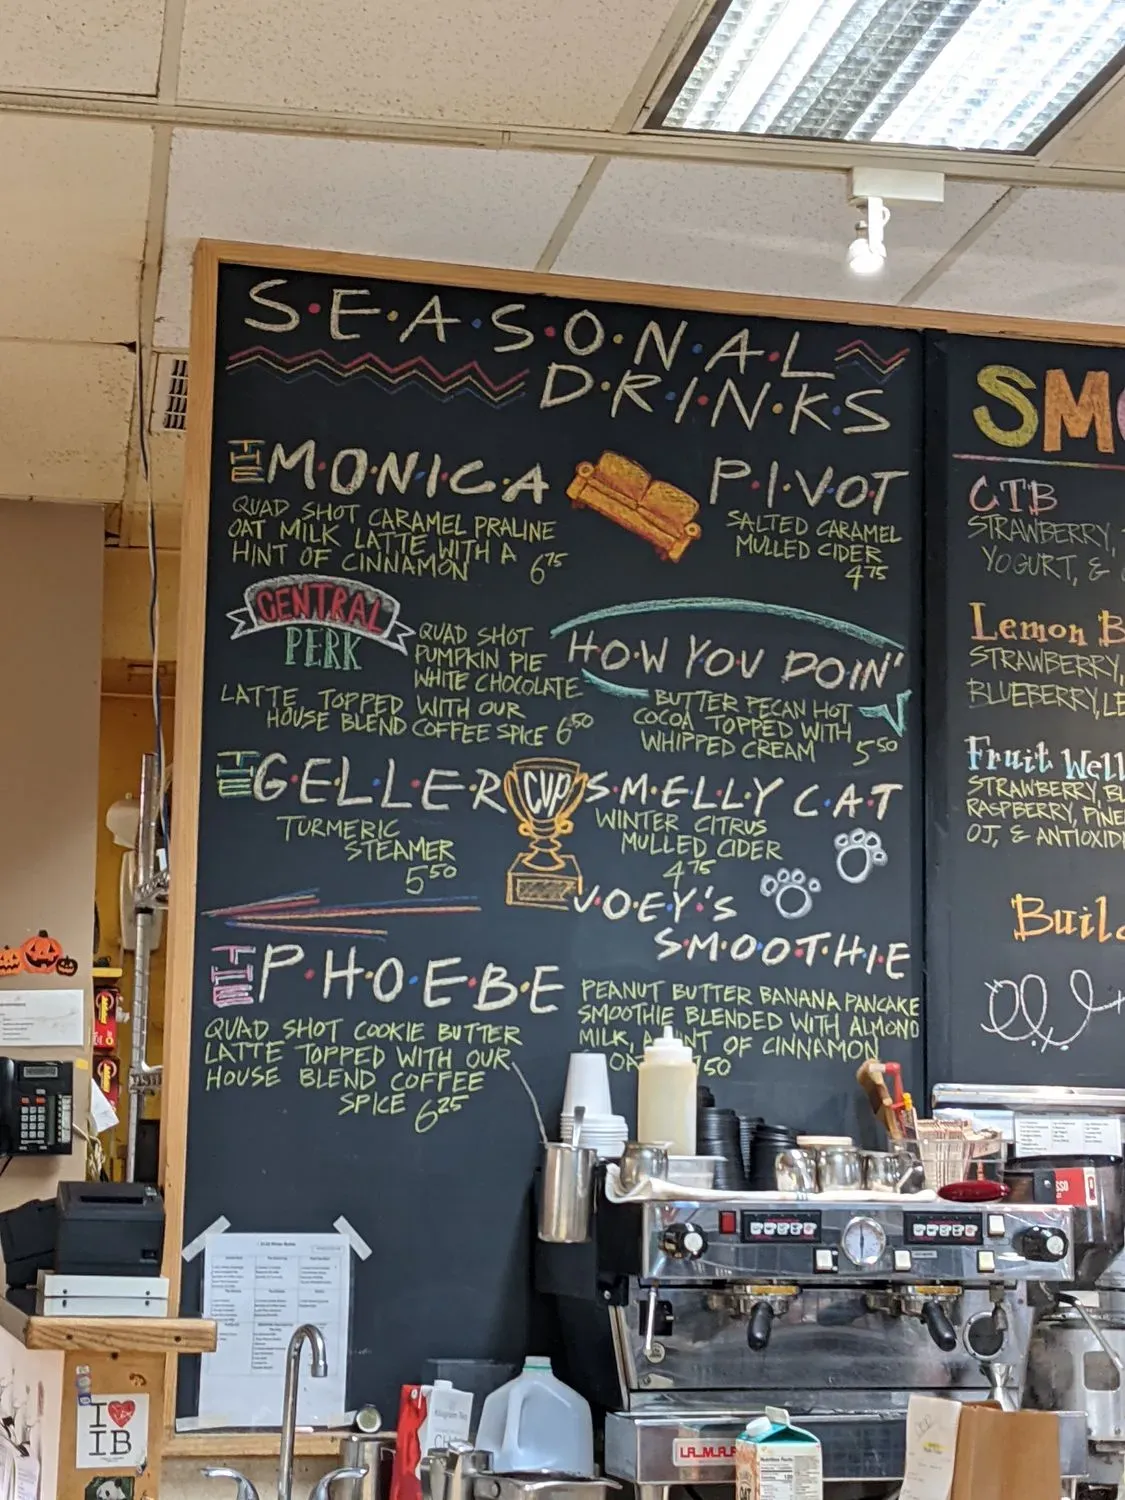 S·E·A·S·O·N·A·L
D·R·I·N·K·S
THE MONICA
QUAD SHOT CARAMEL PRALINE
OAT MILK LATTE WITH A
HINT OF CINNAMON 6.75
PIVOT
SALTED CARAMEL
MULLED CIDER
4.75
CENTRAL
PERK
QUAD SHOT
PUMPKIN PIE
WHITE CHOCOLATE
LATTE TOPPED WITH OUR
HOUSE BLEND COFFEE SPICE 6.50
HOW YOU DOIN'
BUTTER PECAN HOT
COCOA TOPPED WITH
WHIPPED CREAM 5.50
THE GELLER CUP
TURMERIC
STEAMER
5.50
SMELLY CAT
WINTER CITRUS
MULLED CIDER
4.75
JOEY'S
SMOOTHIE
PEANUT BUTTER BANANA PANCAKE
SMOOTHIE BLENDED WITH ALMOND
MILK, A OF CINNAMON
THE PHOEBE
QUAD SHOT COOKIE BUTTER
LATTE TOPPED WITH OUR
HOUSE BLEND COFFEE
SPICE 6.25
CTB
STRAWBERRY,
YOGURT, &
Lemon
STRAWBERRY,
BLUEBERRY,
Fruit Well
STRAWBERRY,
RASPBERRY,
OJ, &
I ♥
IB